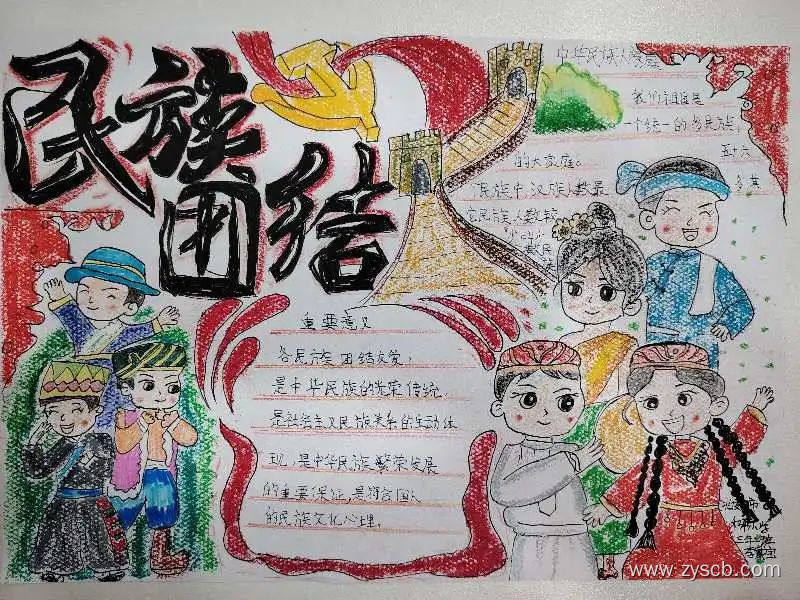 民族
团结
中华民族大家庭
我们祖国是
一个统一的多民族
的大家庭。
五十六
民族中,汉族人数最
重要意义
各民族团结友爱,
是中华民族的光荣传统,
是社会主义民族关系的生动体
现,是中华民族繁荣发展
的重要保证,是符合国人
的民族文化心理。
三年级
www.zyscb.com